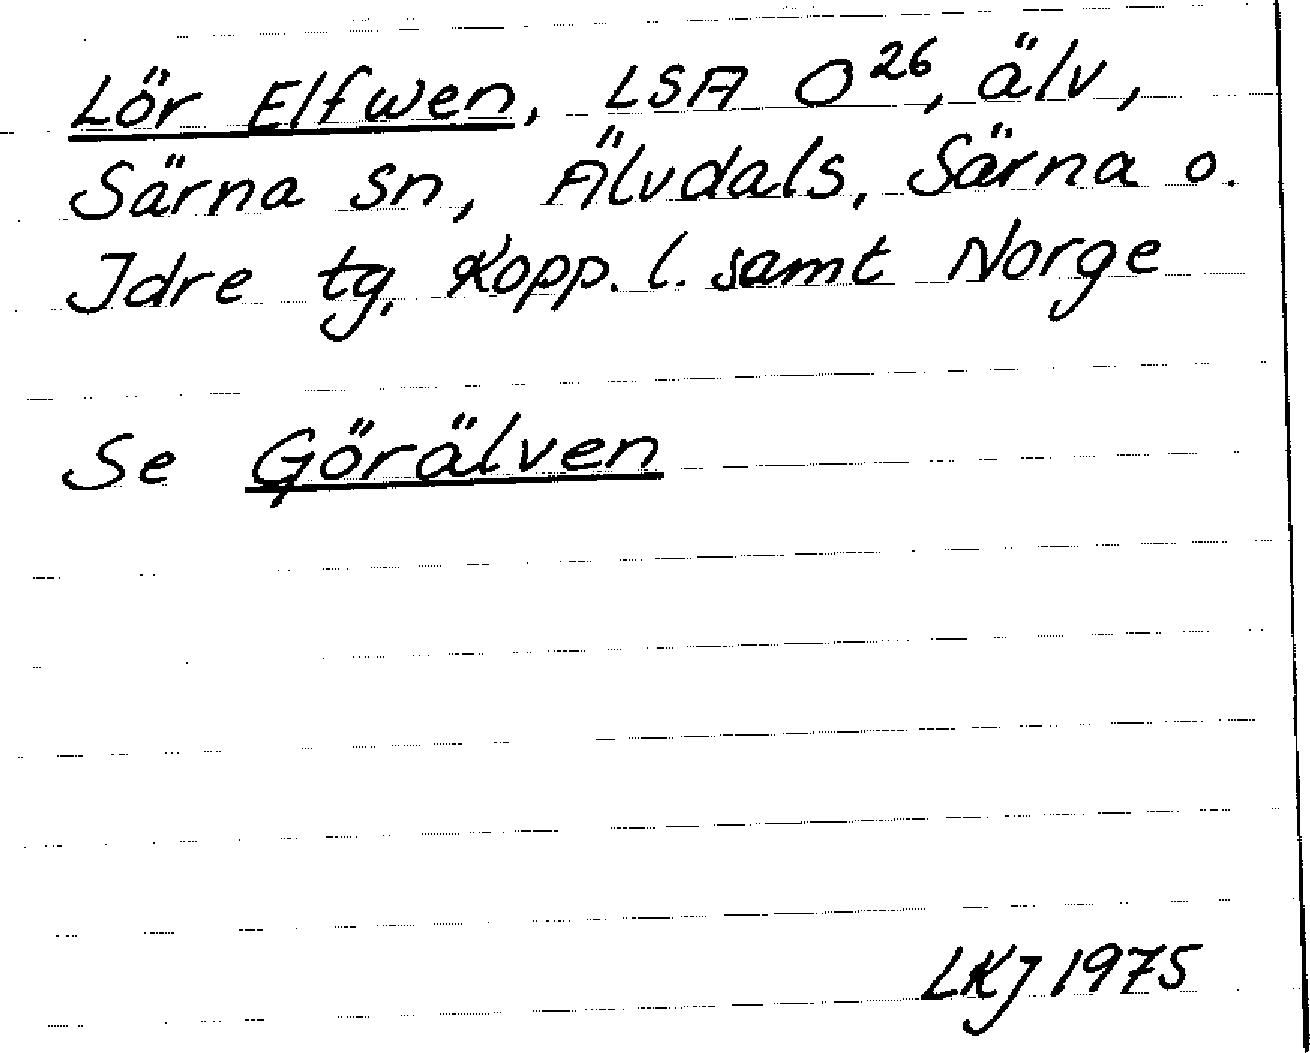 Lör Elfwen, LSA O²⁶, älv,
Särna sn, Älvdals, Särna o.
Idre tg, Kopp. l. samt Norge
Se Görälven
LKJ 1975